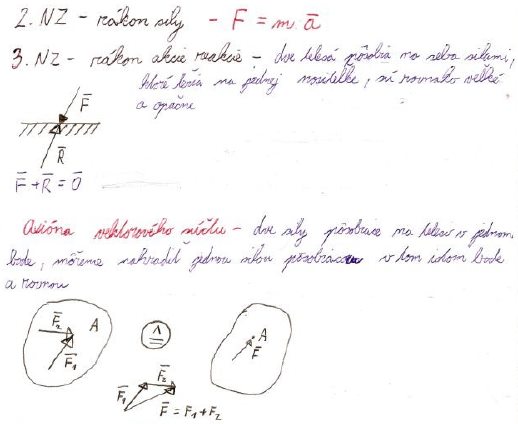 2. NZ - zákon sily - F = m. a̅
3. NZ - zákon akcie reakcie - dve telesá pôsobia na seba silami,
ktoré ležia na jednej nositeľke, sú rovnako veľké
a opačne
F̅
R̅
F̅ + R̅ = O̅
Axióma vektorového súčtu - dve sily pôsobiace na teleso v jednom
bode, môžeme nahradiť jednou silou pôsobiacou v tom istom bode
a rovnou
F̅₂ A
F̅₁
≙
A
F̅
F̅₁ F̅₂
F̅ = F₁ + F₂